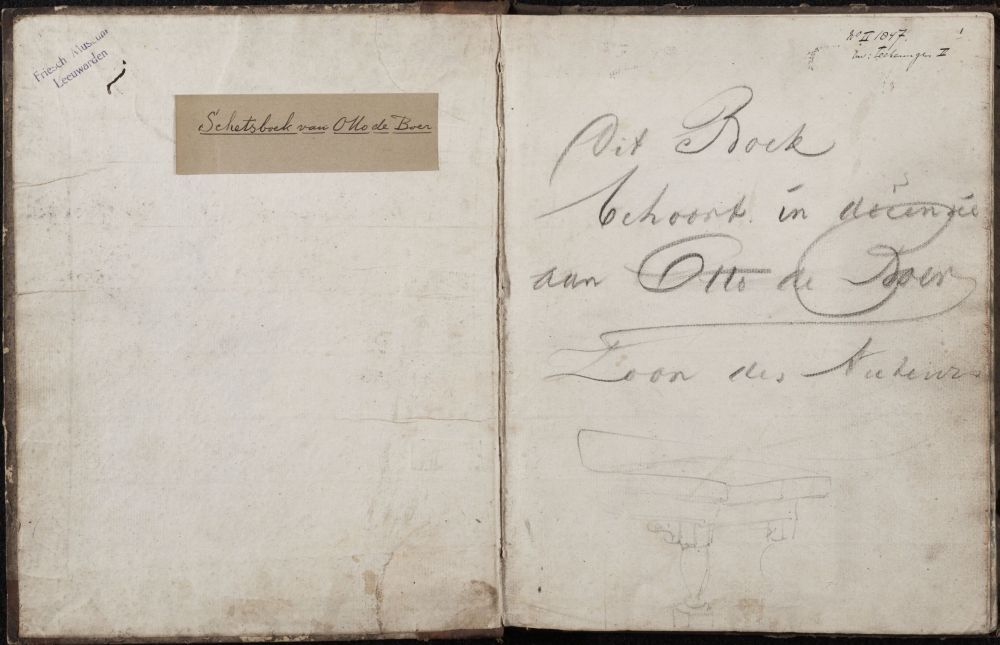 Friesch Museum
Leeuwarden
Schetsboek van Otto de Boer
No II 1847.
Inv: Teekeningen II
1
Dit Boek
behoort in
aan Otto de Boer
Zoon des Auteurs